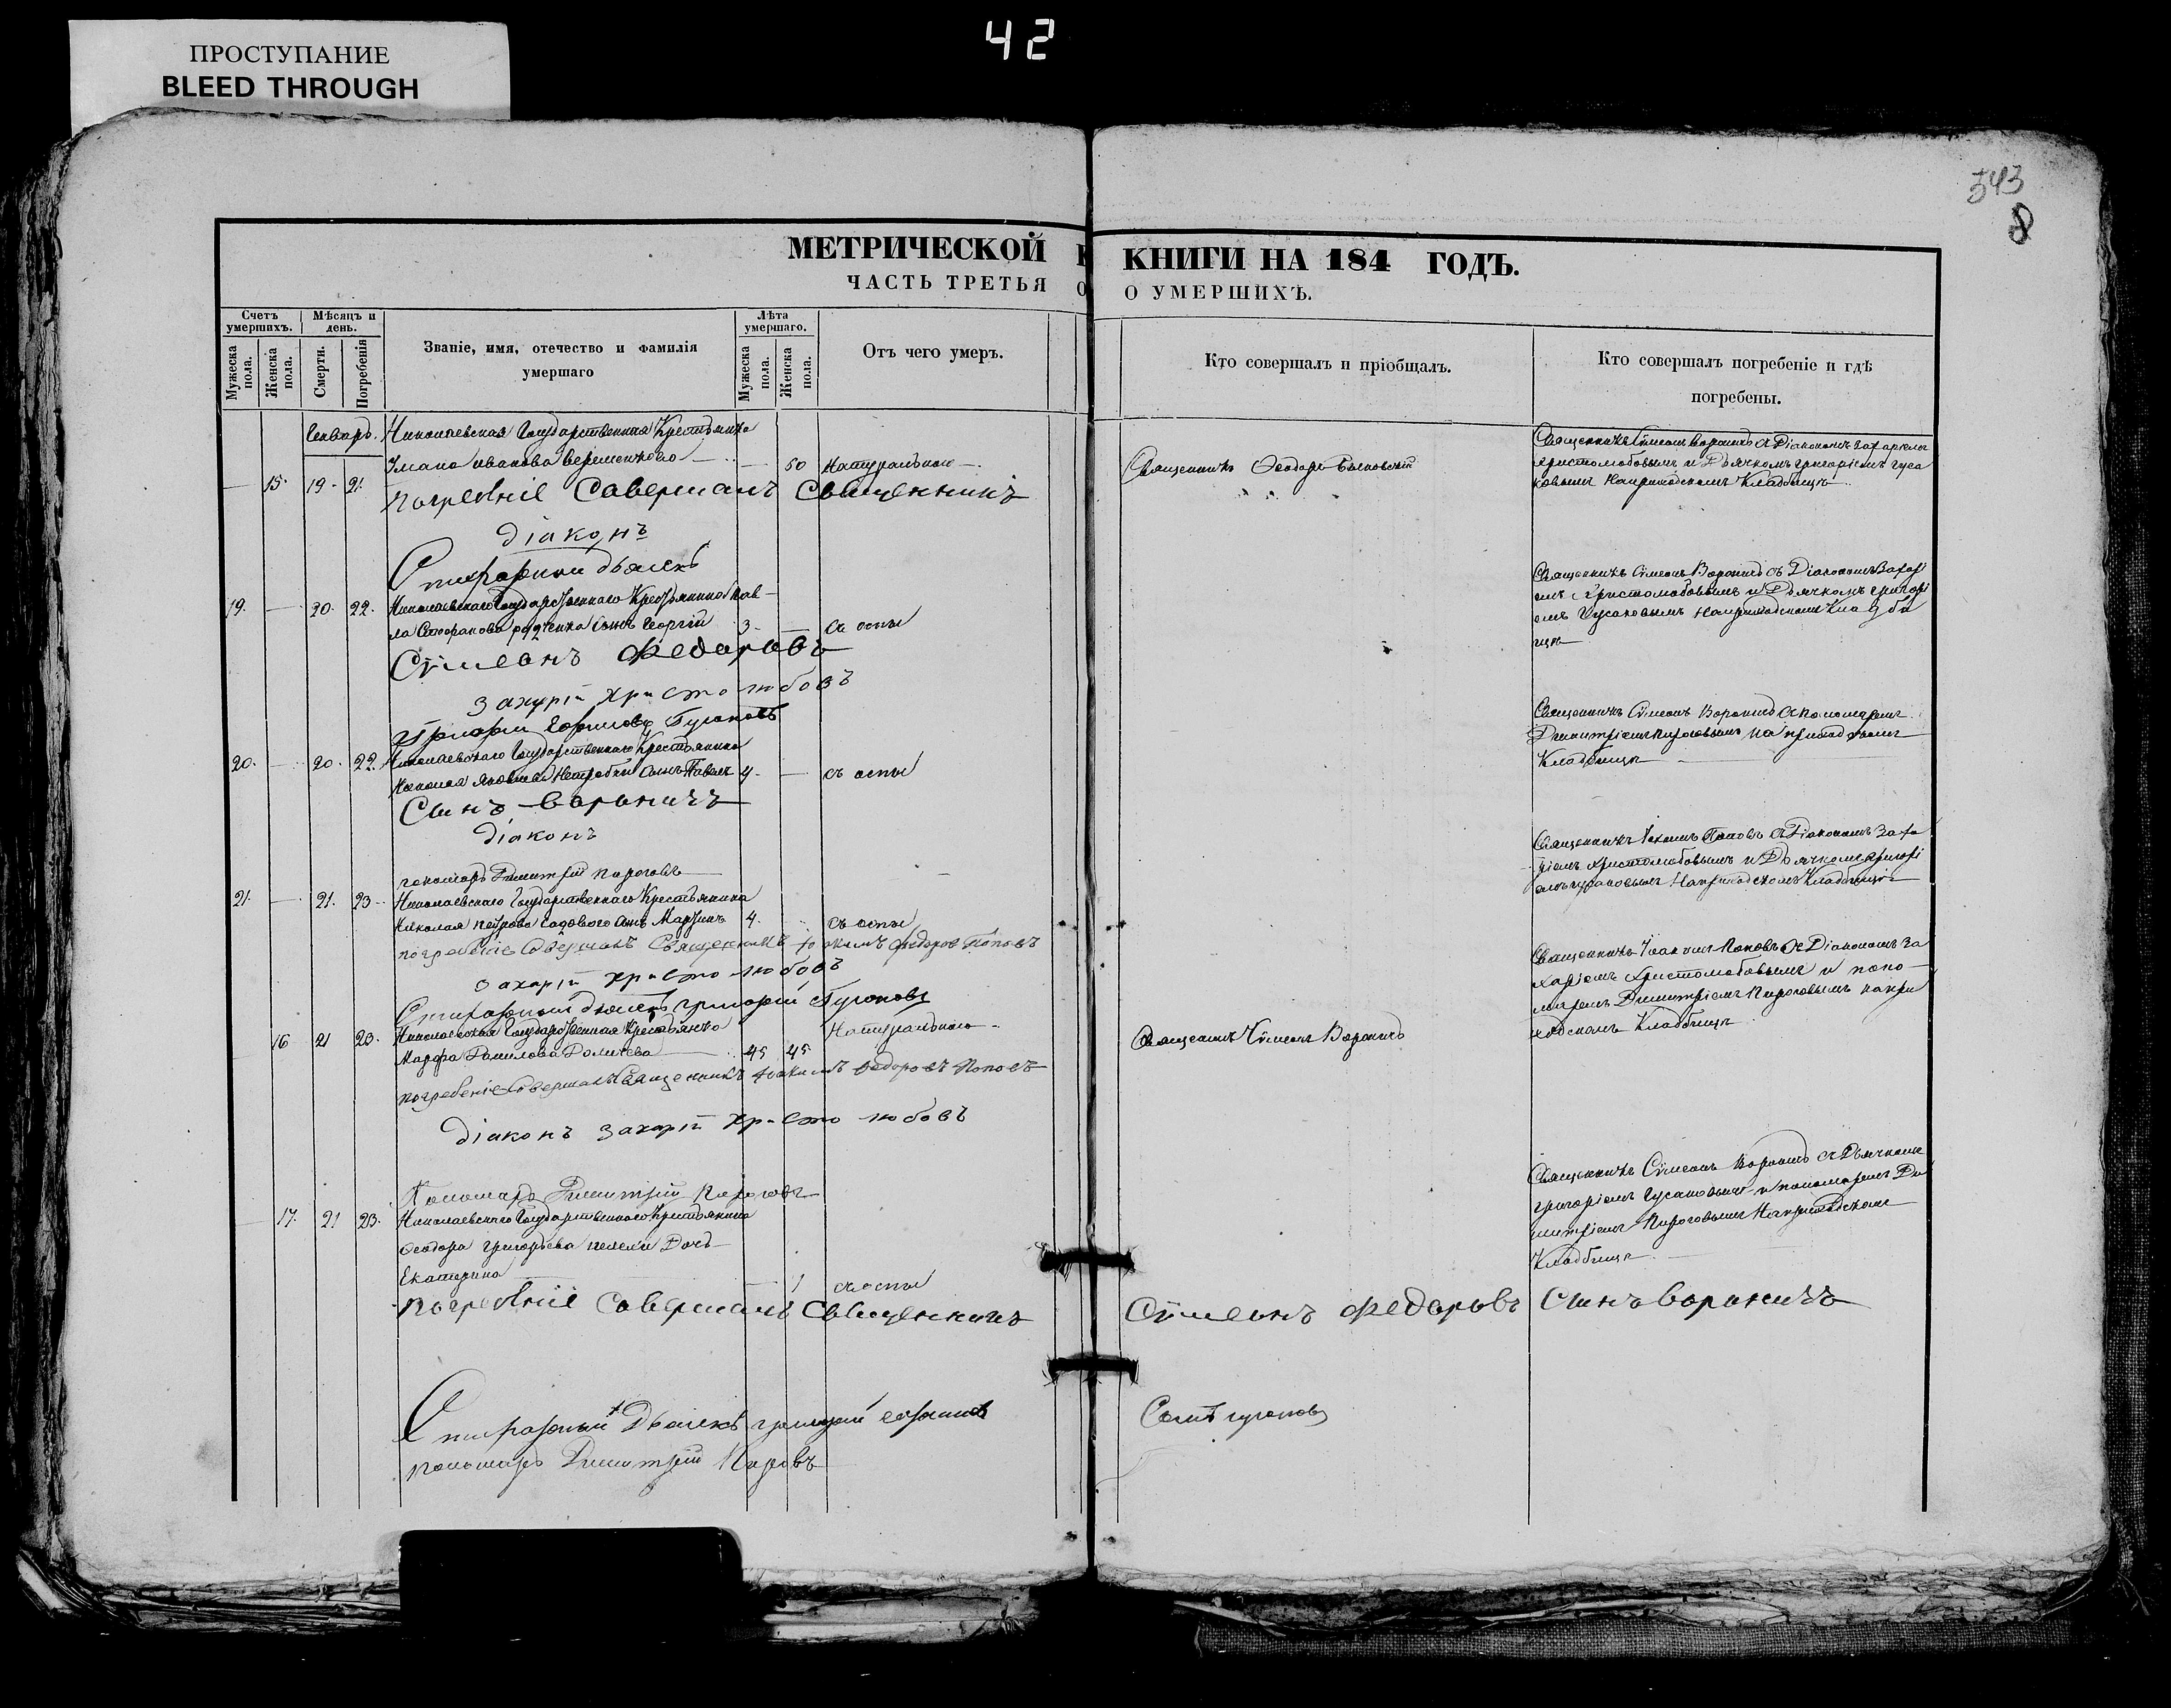 42
ПРОСТУПАНИЕ
BLEED THROUGH
543
8
МЕТРИЧЕСКОЙ КНИГИ НА 184 ГОДЪ.
ЧАСТЬ ТРЕТЬЯ О УМЕРШИХЪ.
Счетъ умершихъ.
Мѣсяцъ и день.
Званіе, имя, отечество и фамилія умершаго
Лѣта умершаго.
Отъ чего умеръ.
Кто совершалъ и пріобщалъ.
Кто совершалъ погребеніе и гдѣ погребены.
Мужеска пола.
Женска пола.
Смерти.
Погребенія
Мужеска пола.
Женска пола.
Генварь. Николаевская Государственная Крестьянка
иванова
— 15. 19 - 21. — 50 Натуральною —.
Священникъ Ѳеодоръ
Священникъ Сѵмеонъ Вороничь съ Діакономъ Захаріемъ
Христолюбовымъ и Дьячкомъ Григоріемъ Гуса
ковымъ на приходскомъ кладбищѣ
погребеніе Совершалъ Священникъ
діаконъ
Стихарный дьячекъ
19. — 20. 22. Николаевскаго Государственнаго Крестьянина Пав-
ла сынъ Георгій 3. — съ оспы
Священникъ Сѵмеонъ Вороничь съ Діакономъ Захарі
емъ Христолюбовымъ и Дьячкомъ Григорі
емъ Гусаковымъ на приходскомъ кладби
щѣ
Сѵмеонъ Федоровъ
Захарій Христолюбовъ
Григорій Гусаковъ
20. — 20. 22. Николаевскаго Государственнаго Крестьянина
Николая Яковлева сынъ Павелъ 4. — съ оспы
Священникъ Сѵмеонъ Вороничь съ пономаремъ
Димитріемъ Пироговымъ на приходскомъ
Кладбищѣ
Сынъ Вороничъ
діаконъ
пономарь Димитрій Пироговъ
21. — 21. 23. Николаевскаго Государственнаго Крестьянина
Николая Петрова Садового сынъ 4. съ оспы
Священникъ Іоакимъ Поповъ съ Діакономъ Заха
ріемъ Христолюбовымъ и Дьячкомъ Григорі
емъ Гусаковымъ на приходскомъ кладбищѣ
погребеніе Совершалъ Священникъ Іоакимъ Федоровъ Поповъ
Захарій Христолюбовъ
Стихарный дьячекъ Григорій Гусаковъ
— 16 21 23. Николаевская Государственная Крестьянка
Марфа Данилова 45 45 Натуральною.
Священникъ Сѵмеонъ Вороничь
Священникъ Іоакимъ Поповъ съ Діакономъ За
харіемъ Христолюбовымъ и поно-
маремъ Димитріемъ Пироговымъ на при
ходскомъ Кладбищѣ
погребеніе Совершалъ Священникъ Іоакимъ Федоровъ Поповъ
діаконъ Захарій Христолюбовъ
Пономарь Димитрій Пироговъ
— 17. 21 23. Николаевскаго Государственнаго Крестьянина
Ѳеодора Григорьева Дочь
Екатерина — 1 съ оспы
Священникъ Сѵмеонъ Вороничь съ Дьячкомъ
Григоріемъ Гусаковымъ и пономаремъ Ди
митріемъ Пироговымъ на приходскомъ
Кладбищѣ
погребеніе Совершалъ Священникъ Сѵмеонъ Федоровъ Сынъ Вороничъ
Стихарный Дьячекъ Григорій
Сынъ Гусаковъ
пономарь Димитрій